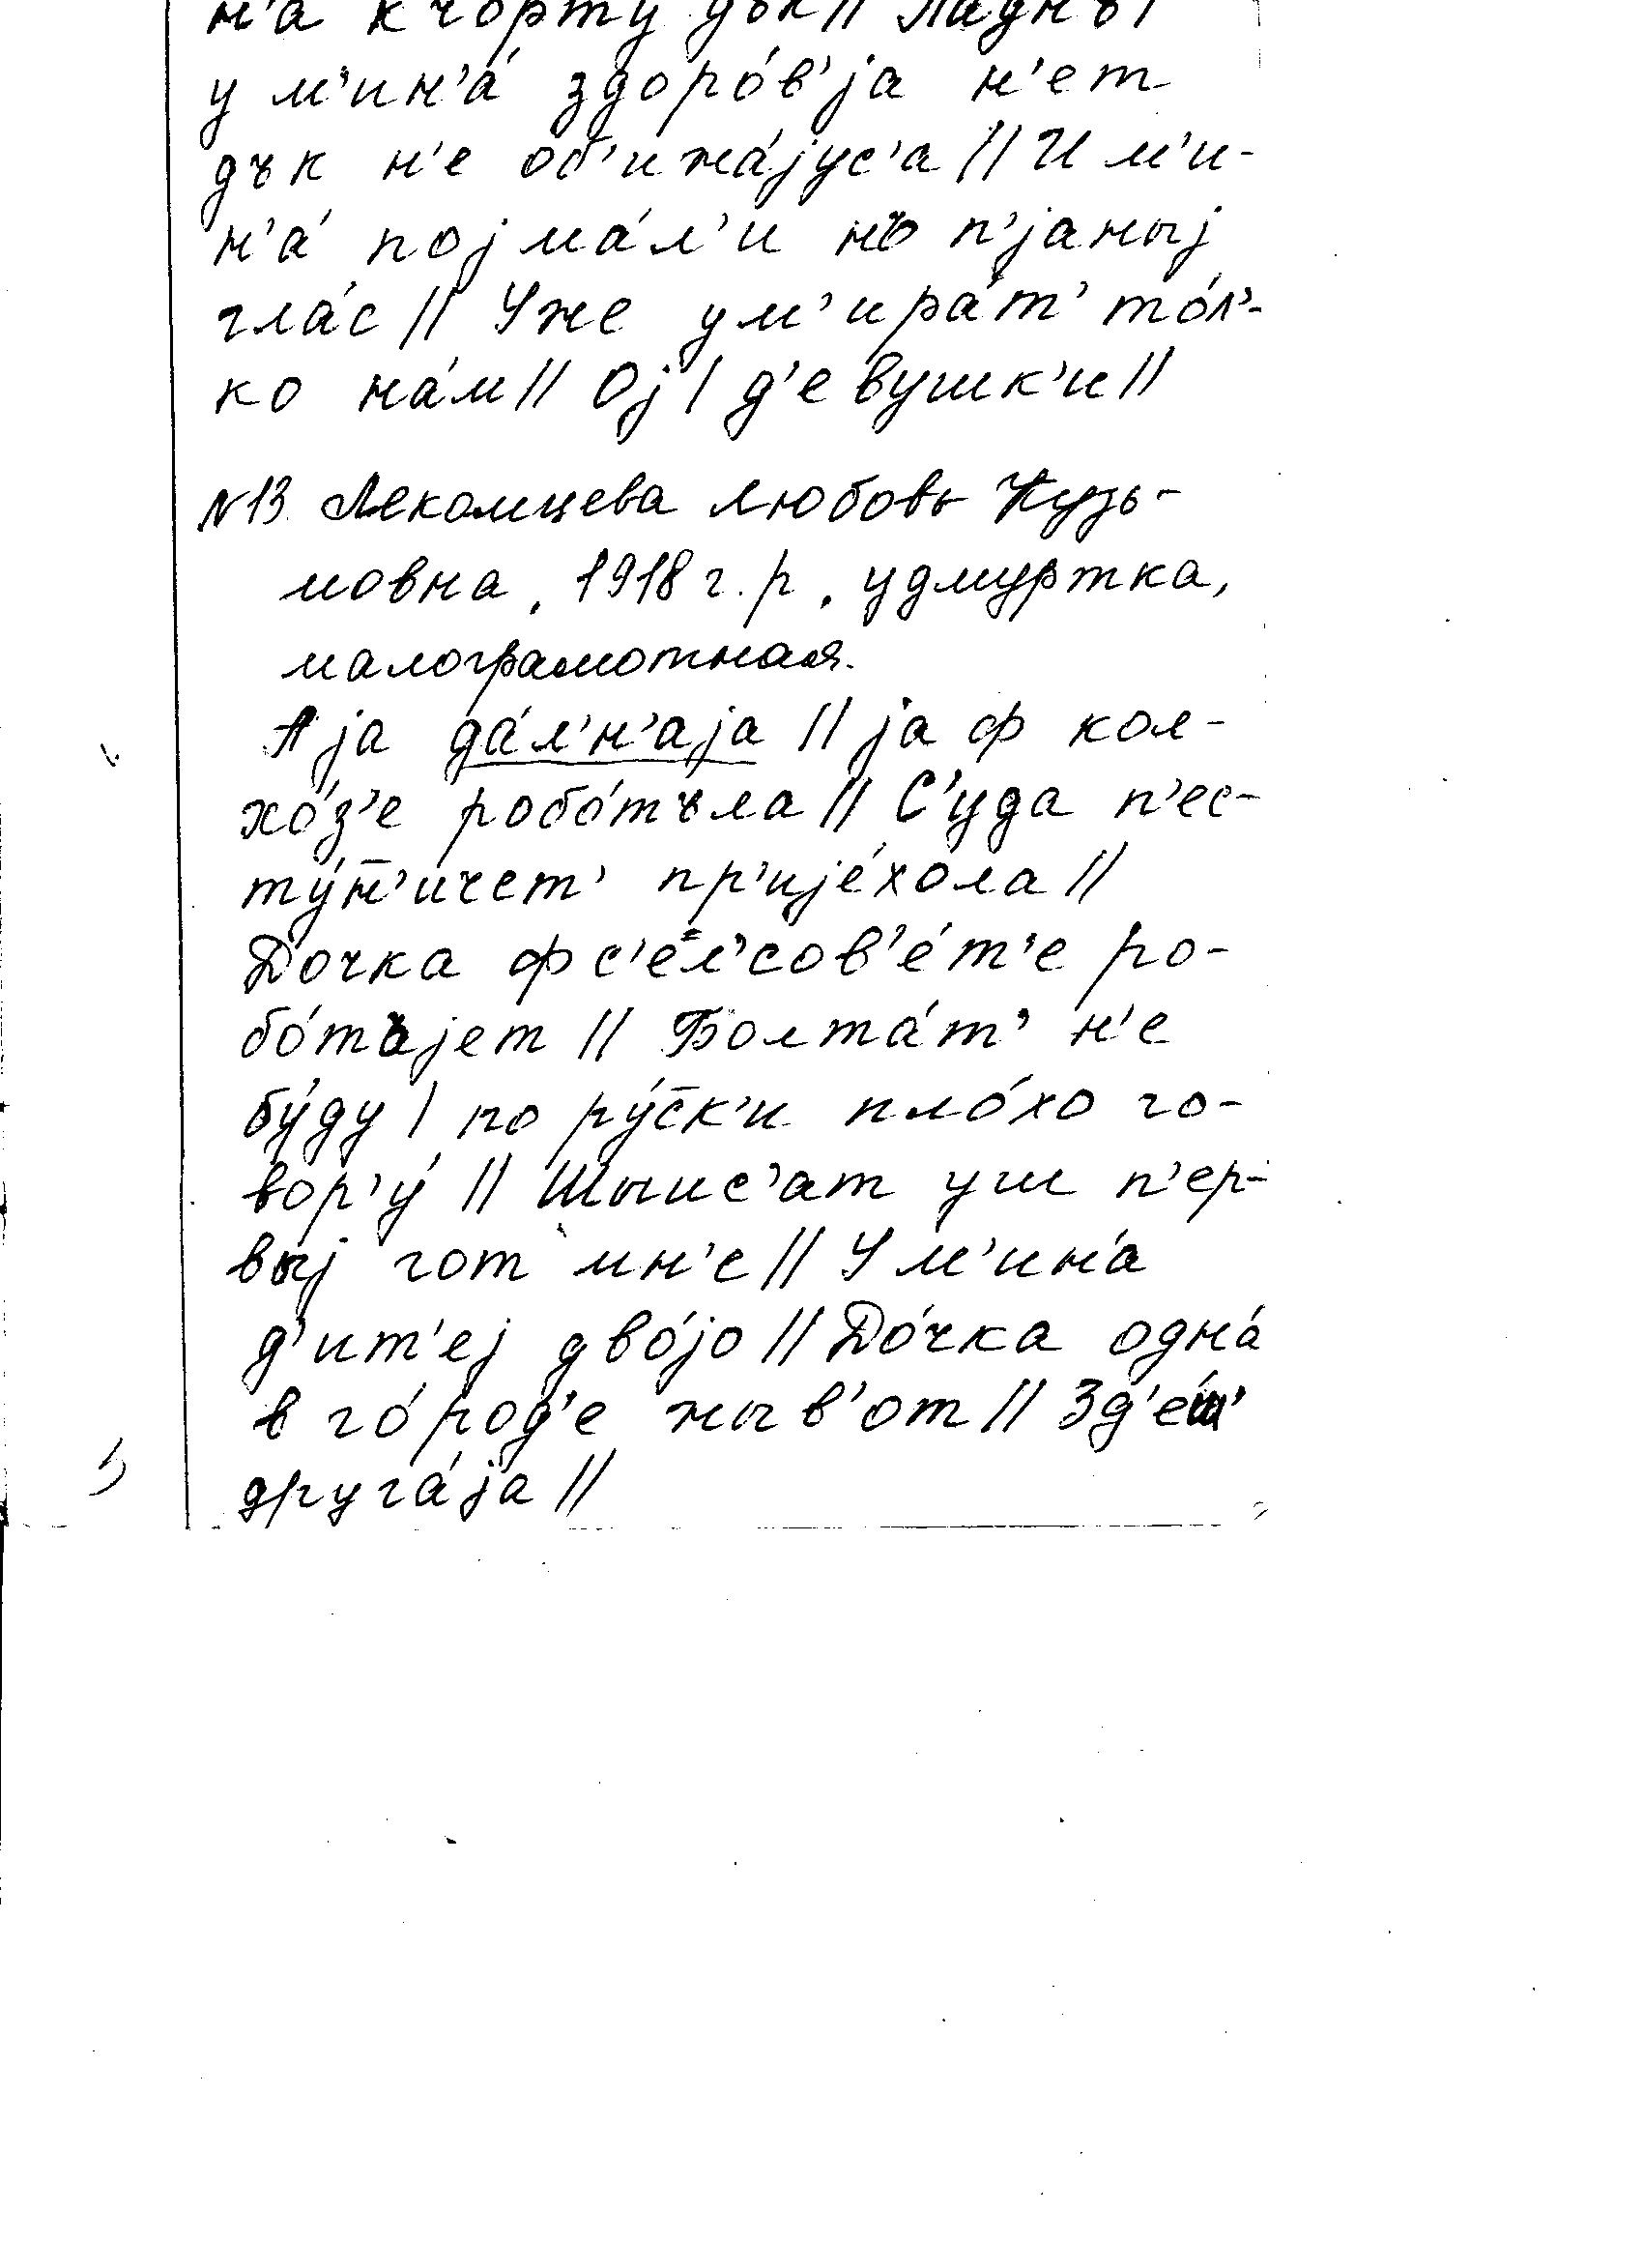 н'а к чорту дък // Ладнъ /
у м'ин'а́ здоро́в'jа н'ет
дък н'е об'ижа́jус'а // И м'и-
н'а́ поjма́л'и нъ п'jаныj
гла́с // Уже ум'ира́т' то́л'-
ко на́м // Оj / д'евушк'и //
N13. Лекомцева Любовь Кузь-
мовна, 1918 г.р., удмуртка,
малограмотная.
А jа да́л'н'аjа // jа ф кол-
хо́з'е робо́тъла // С'уда п'ес-
ту́н̄'ичет' пр'иjе́хола //
Дочка ф с'ел'сов'е́т'е ро-
бо́тъjет // Болта́т' н'е
бу́ду / по ру́с̄к'и пло́хо го-
вор'у́ // Шыис'ат уш п'ер-
выj гот мн'е // У м'ина́
д'ит'еj дво́jо // До́чка одна́
в го́род'е жыв'от // Зд'е́ш'
друга́jа //